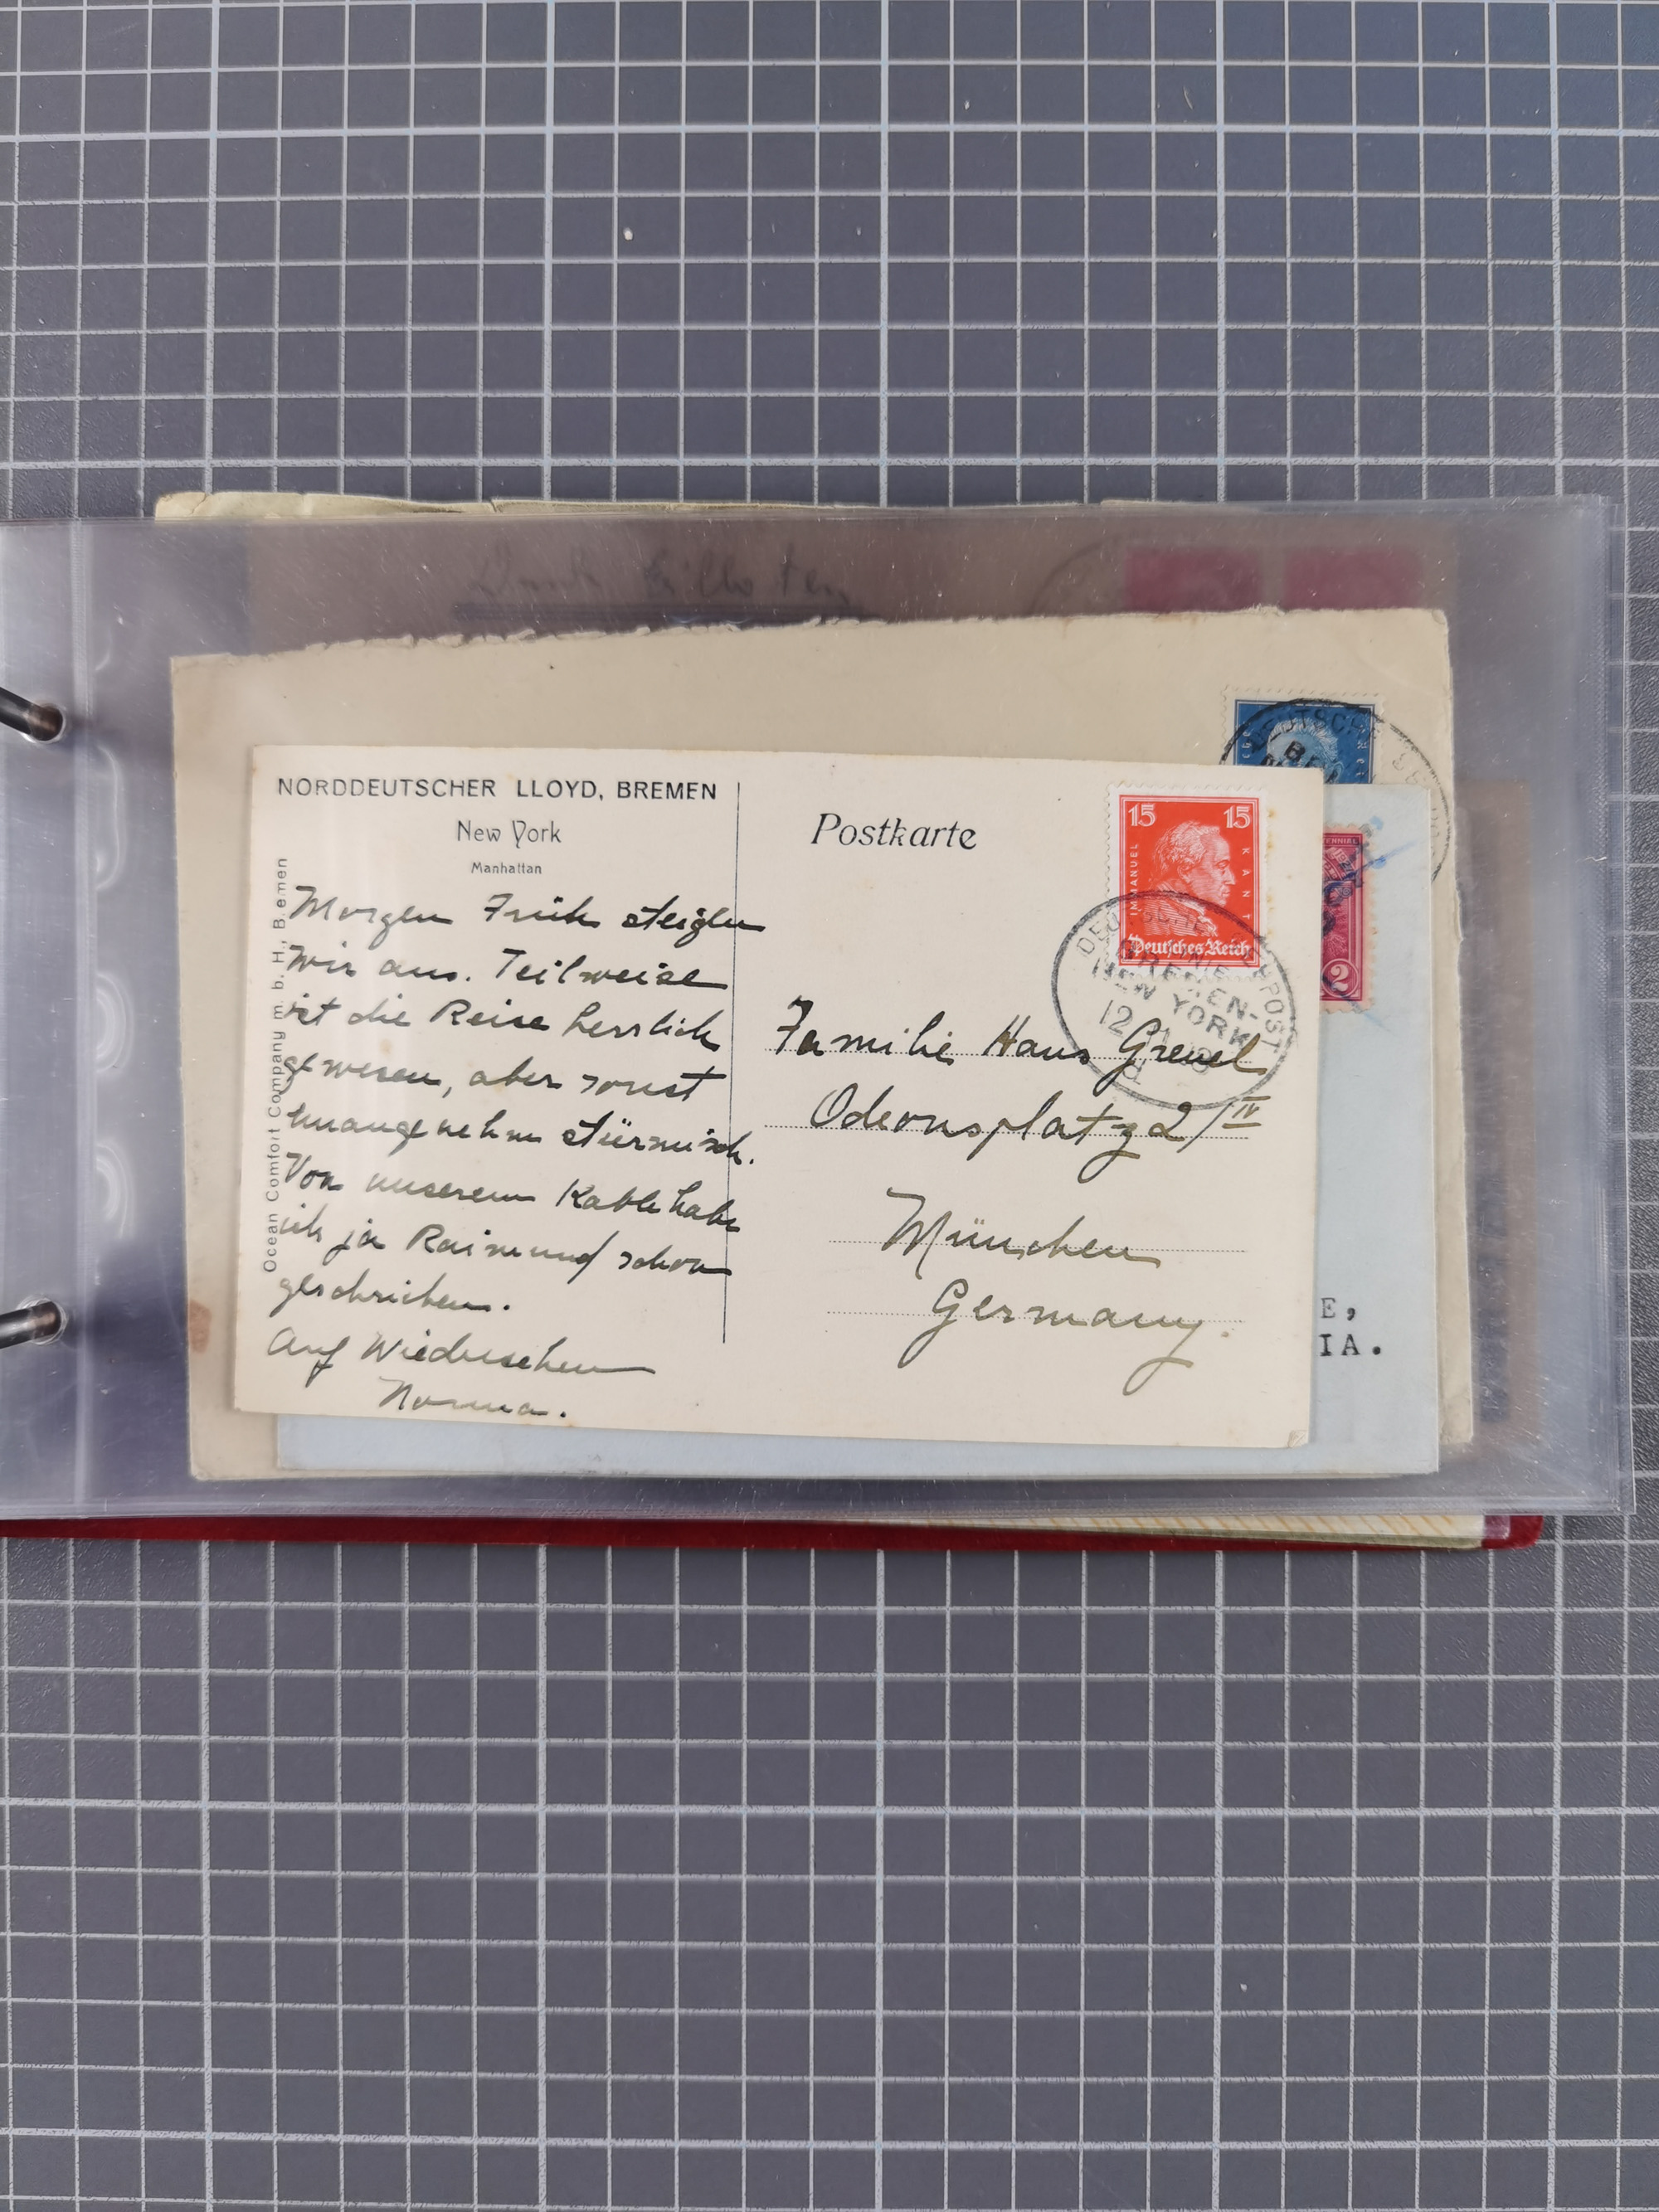 NORDDEUTSCHER LLOYD, BREMEN
New York
Manhattan
Ocean Comfort Company m. b. H., Bremen
Morgen Früh steigen
wir aus. Teilweise
ist die Reise herrlich
gewesen, aber sonst
unangenehm stürmisch.
Von unserem Kable habe
ich ja Raimund schon
geschrieben.
Auf Wiedersehen
Norma.
Postkarte
15 15
IMMANUEL KANT
Deutsches Reich
DEUTSCHE SEEPOST
BREMEN-
NEW YORK
12
Familie Hans Greuel
Odeonsplatz 2/IV
München
Germany.
DEUTSCHE
2
E,
IA.